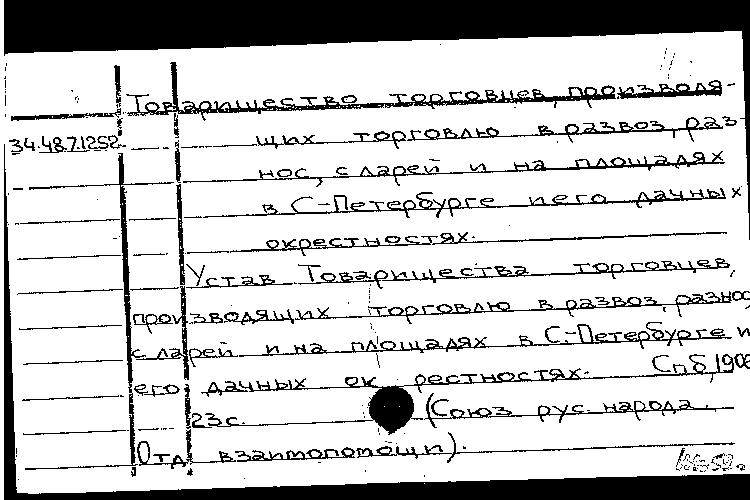 Товарищество торговцев, производя-
34.48.7.1252. щих торговлю в развоз, раз-
нос, с ларей и на площадях
в С-Петербурге и его дачных
окрестностях.
Устав Товарищества торговцев,
производящих торговлю в развоз, разнос
с ларей и на площадях в С.-Петербурге и
его дачных окрестностях. Спб, 190
23с. (Союз рус. народа.
Отд взаимопомощи).